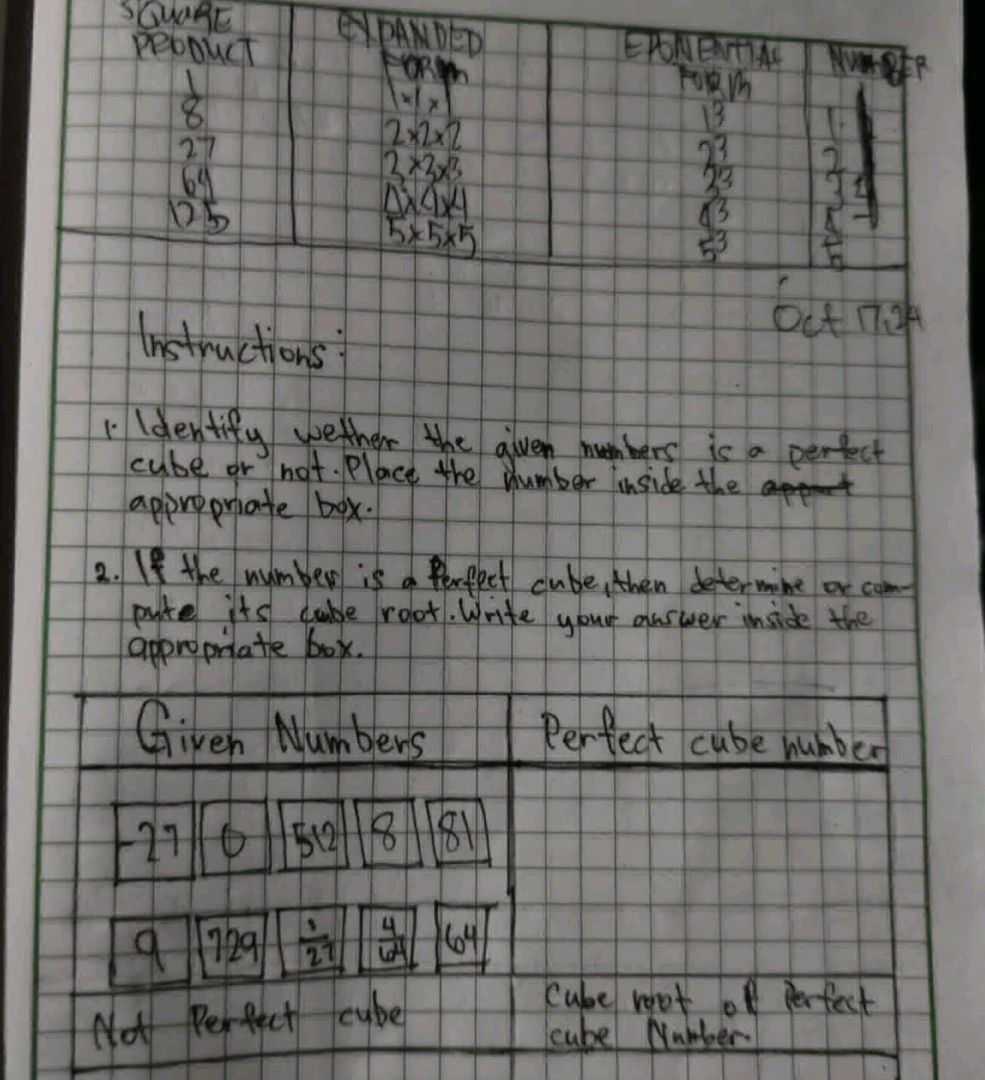 SQUARE PRODUCT
EXPANDED FORM
EPONENTIAL FORM
NUMBER
1 1×1×1 1³ 1
8 2×2×2 2³ 2
27 3×3×3 3³ 3
64 4×4×4 4³ 4
125 5×5×5 5³ 5
Oct 17,24
Instructions:
1. Identify wether the given numbers is a perfect
cube or not. Place the number inside the
appropriate box.
2. If the number is a Perfect cube, then determine or com-
pute its cube root. Write your answer inside the
appropriate box.
Given Numbers Perfect cube number
-27 0 512 8 81
9 729 1/27 4/64 64
Not Perfect cube
Cube root of Perfect
cube Number.